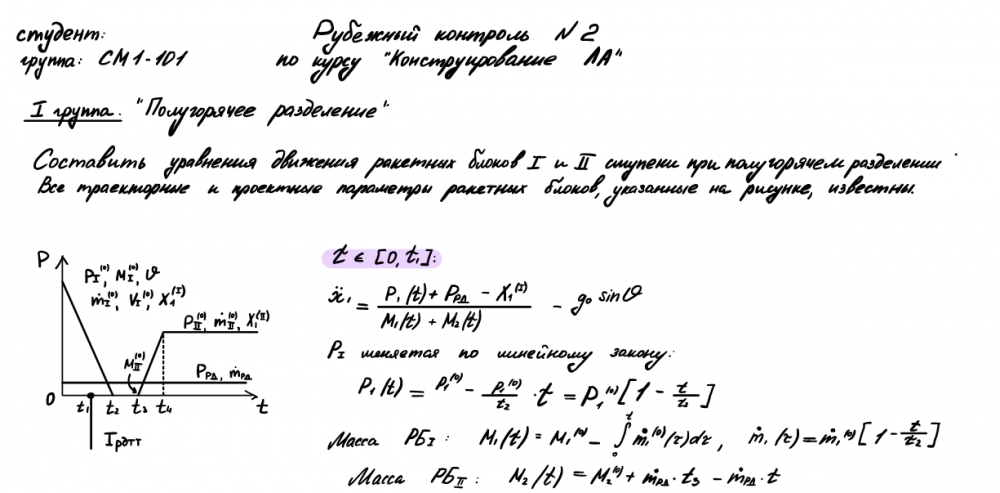 студент:
Рубежный контроль N 2
группа: СМ1-101
по курсу "Конструирование ЛА"
I группа. "Полугорячее разделение"
Составить уравнения движения ракетных блоков I и II ступени при полугорячем разделении.
Все траекторные и проектные параметры ракетных блоков, указанные на рисунке, известны.
P
P_I^(0), M_I^(0), ϑ
ṁ_I^(0), V_I^(0), X_1^(I)
P_II^(0), ṁ_II^(0), X_1^(II)
M_II^(0)
P_РД, ṁ_РД
0 t₁ t₂ t₃ t₄ t
I_РДТТ
t ∈ [0, t₁]:
ẍ₁ = (P₁(t) + P_РД − X_1^(I)) / (M₁(t) + M₂(t)) − g₀ sinϑ
P_I меняется по линейному закону:
P₁(t) = P₁^(0) − P₁^(0)/t₂ · t = P₁^(0) [1 − t/t₂]
Масса РБ_I: M₁(t) = M₁^(0) − ∫₀ᵗ ṁ₁^(0)(τ)dτ, ṁ₁(τ) = ṁ₁^(0) [1 − t/t₂]
Масса РБ_II: M₂(t) = M₂^(0) + ṁ_РД · t₃ − ṁ_РД · t